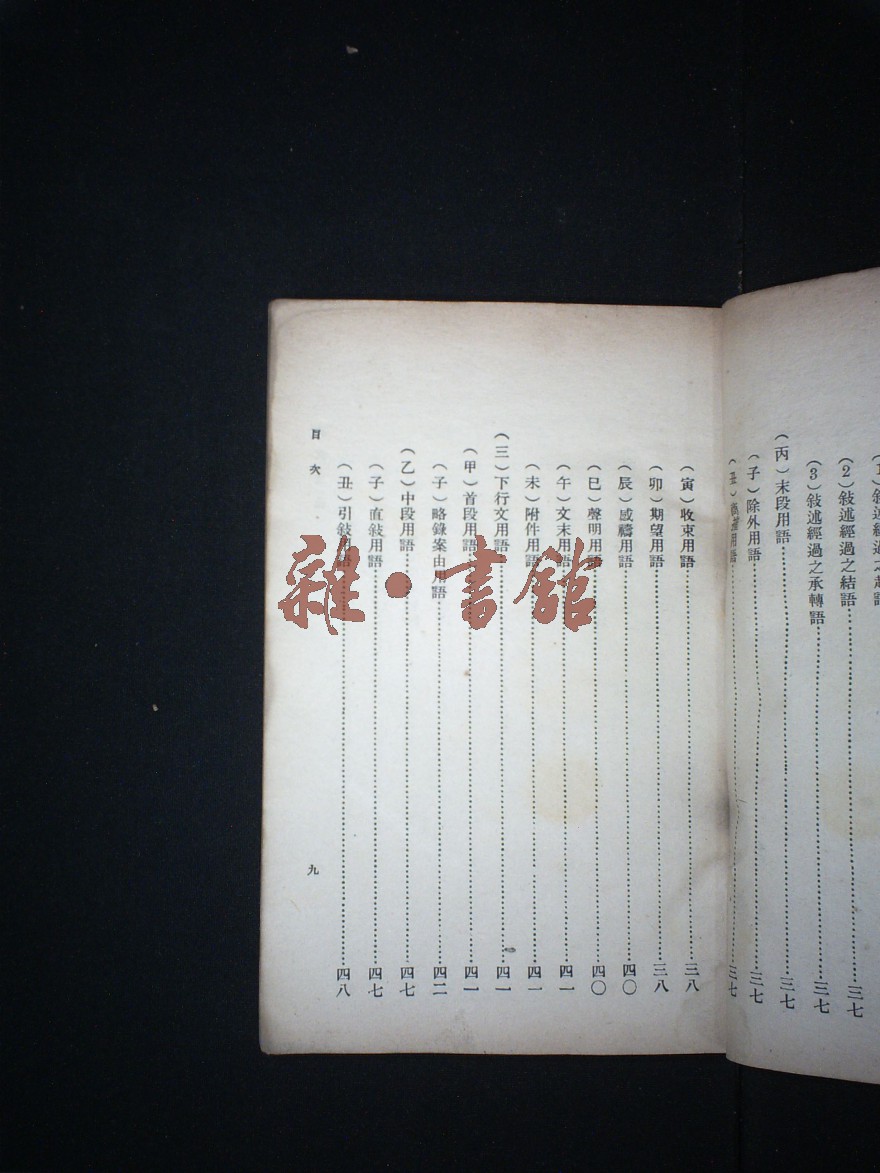 敍述經過之起語
(2)敍述經過之結語……三七
(3)敍述經過之承轉語……三七
(丙)末段用語……三七
(子)除外用語……三七
(丑)用語……三七
(寅)收束用語……三八
(卯)期望用語……三八
(辰)感禱用語……四〇
(巳)聲明用語……四〇
(午)文末用語……四一
(未)附件用語……四一
(三)下行文用語……四一
(甲)首段用語……四一
(子)略錄案由用語……四二
(乙)中段用語……四七
(子)直敍用語……四七
(丑)引敍用語……四八
目次
九
雜·書館